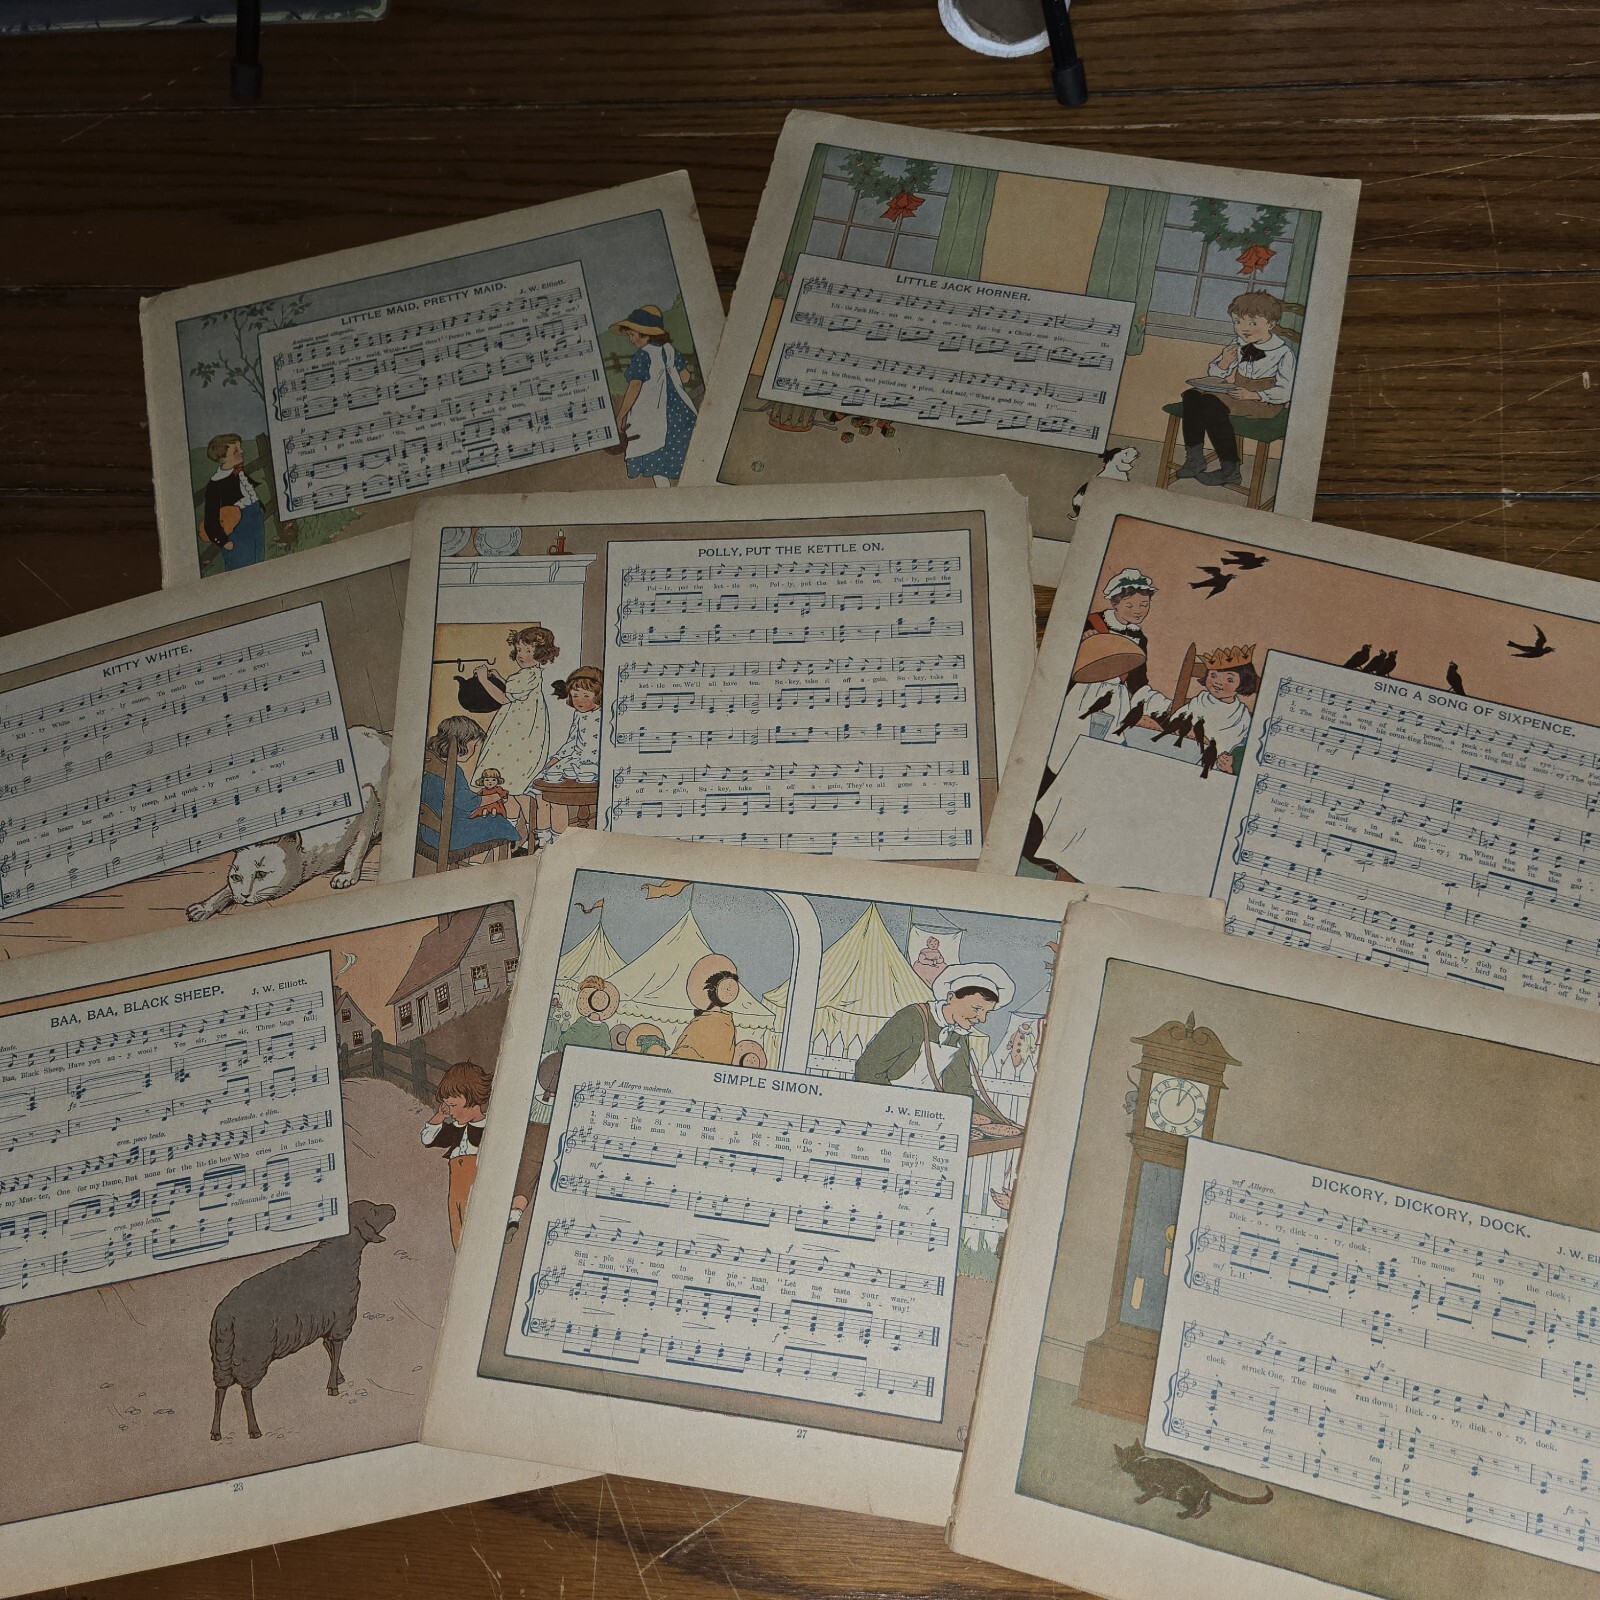 LITTLE MAID, PRETTY MAID.
J. W. Elliott.
"Shall I go with thee?" "No, not now;
LITTLE JACK HORNER.
Lit-tle Jack Hor-ner sat in a cor-ner, Eat-ing a Christ-mas pie; He
put in his thumb, and pulled out a plum, And said, "What a good boy am I!"
KITTY WHITE.
Kit - ty White so sly - ly comes, To catch the mou - sie gray; But
mou - sie hears her soft - ly creep, And quick - ly runs a - way!
POLLY, PUT THE KETTLE ON.
Pol - ly, put the ket - tle on, Pol - ly, put the ket - tle on, Pol - ly, put the
ket - tle on, We'll all have tea. Su - key, take it off a - gain, Su - key, take it
off a - gain, Su - key, take it off a - gain, They've all gone a - way.
SING A SONG OF SIXPENCE.
1. Sing a song of six - pence, a pock - et full of rye;
2. The king was in his coun - ting house, coun - ting out his mon - ey; The
mf
black - birds baked in a pie; When the pie was o -
par - lor eat - ing bread an.. hon - ey; The maid was in the gar -
birds be - gan to sing, Was - n't that a dain - ty dish to set be - fore the
hang - ing out her clothes, When up came a black - bird and pecked off her
BAA, BAA, BLACK SHEEP.
J. W. Elliott.
Baa, Black Sheep, Have you an - y wool? Yes sir, yes sir, Three bags full;
fz
cres. poco lento.
rallentando. e dim.
my Mas - ter, One for my Dame, But none for the lit - tle boy Who cries in the lane.
cres. poco lento.
rallentando. e dim.
23
SIMPLE SIMON.
J. W. Elliott.
mf Allegro moderato.
ten. f
1. Sim - ple Si - mon met a pie - man Go - ing to the fair; Says
2. Says the man to Sim - ple Si - mon, "Do you mean to pay?" Says
mf
ten. f
f
Sim - ple Si - mon to the pie - man, "Let me taste your ware."
Si - mon, "Yes, of course I do," And then he ran a - way!
f
27
DICKORY, DICKORY, DOCK.
J. W. El
mf Allegro.
Dick - o - ry, dick - o - ry, dock; The mouse ran up the clock;
mf L.H
fz
fz
clock struck One, The mouse ran down; Dick - o - ry, dick - o - ry, dock.
ten.
ten. p
fz